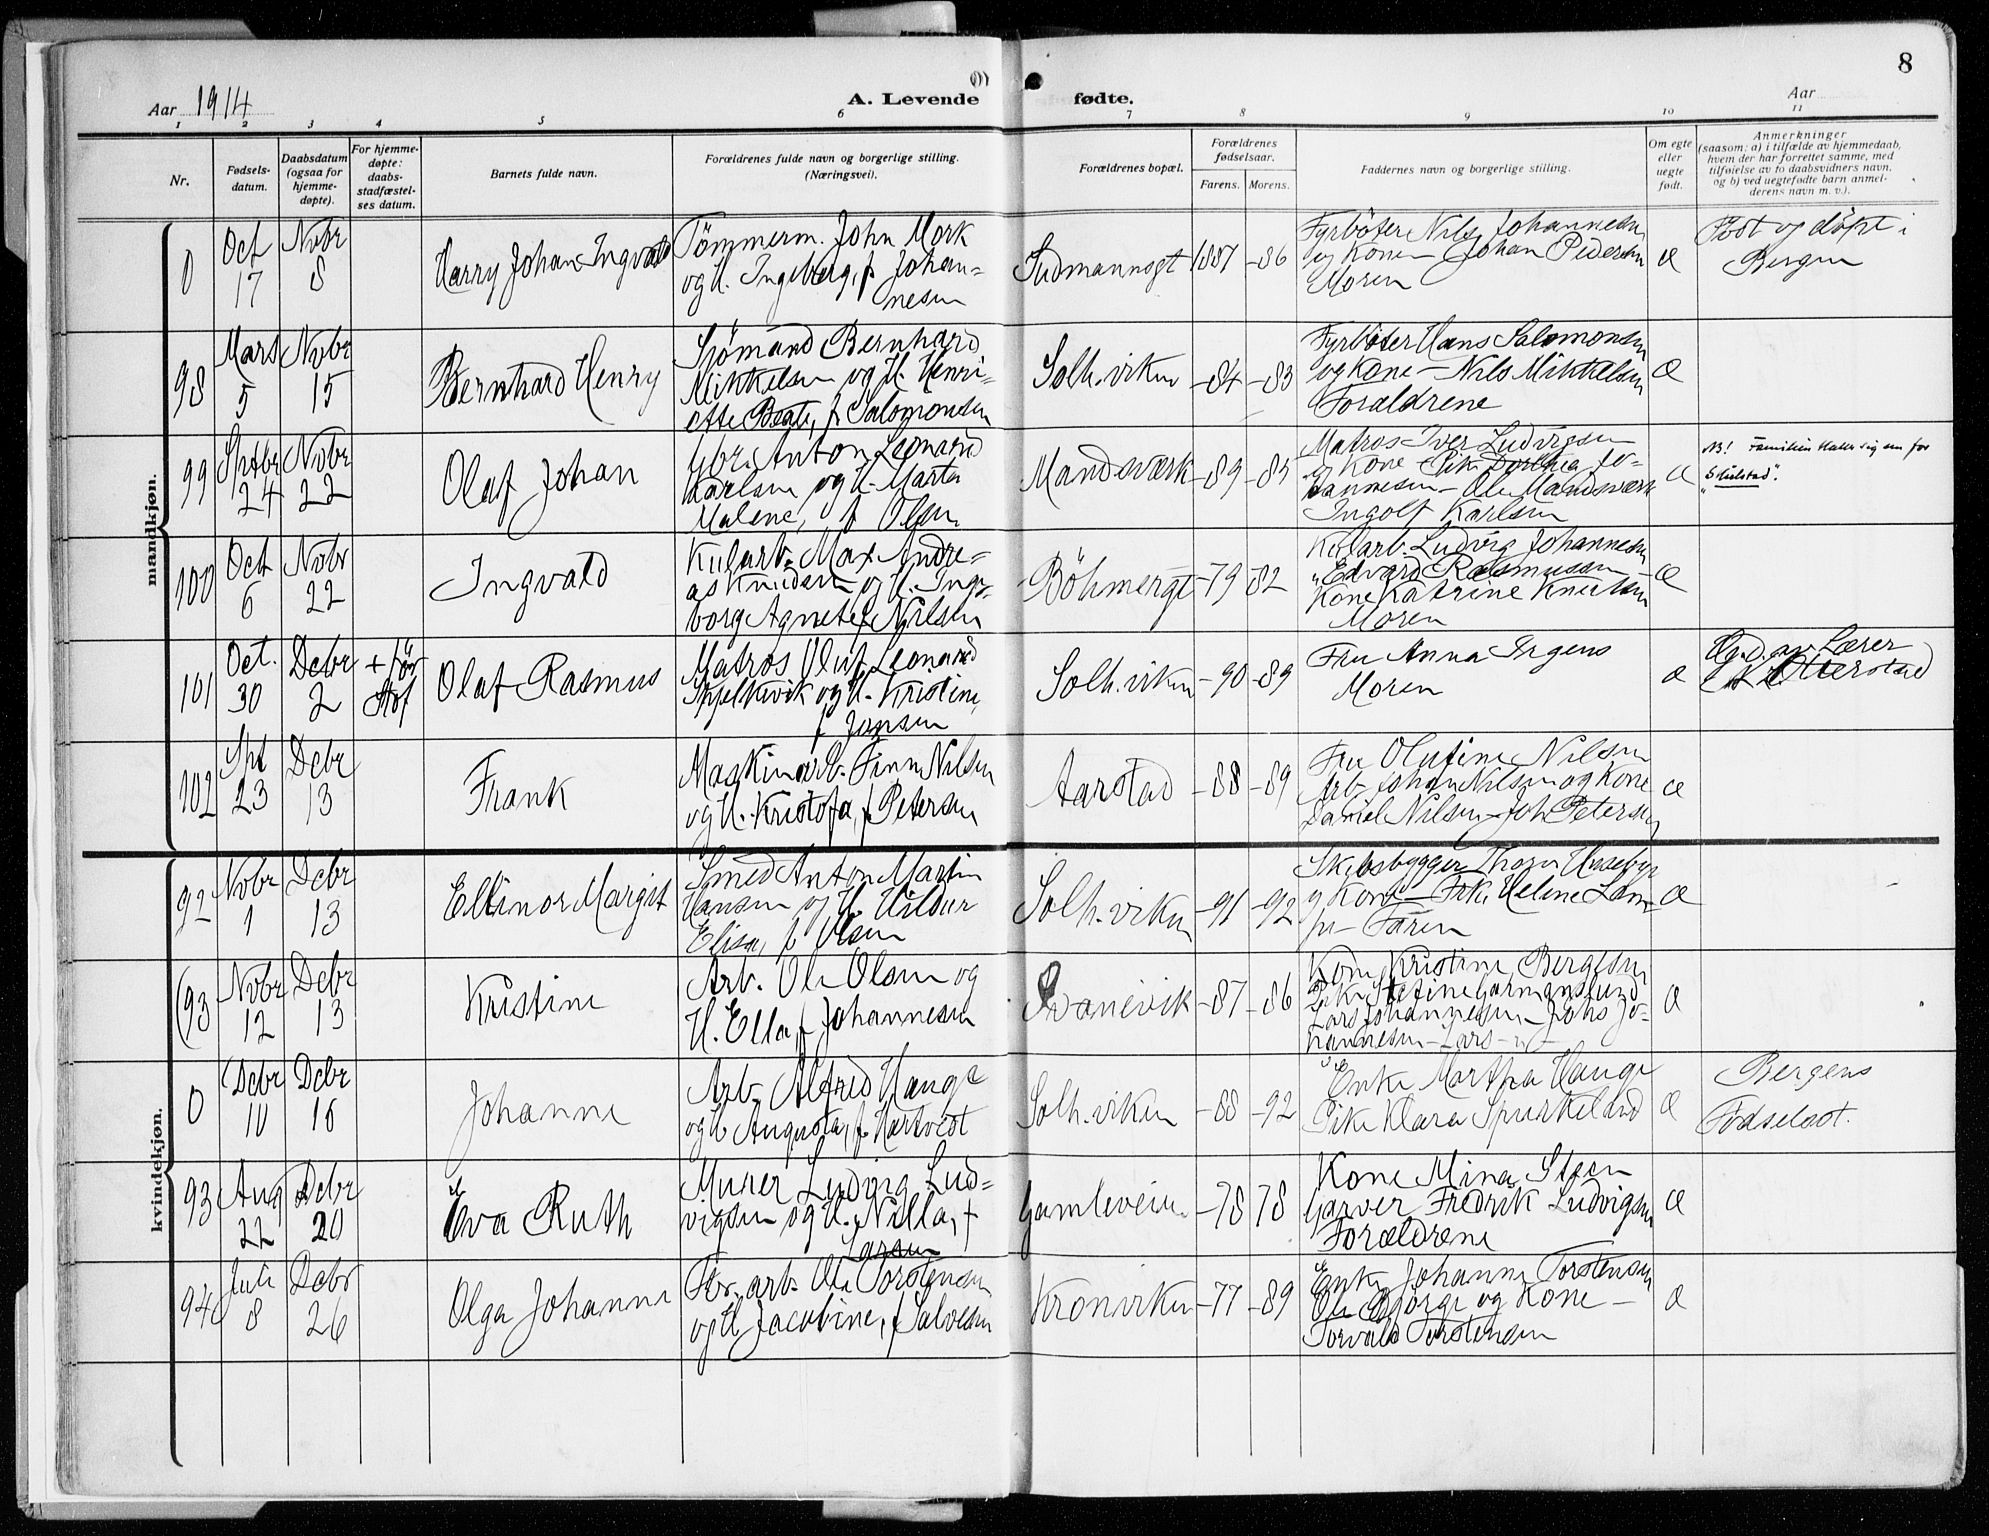 8
Aar 1914
A. Levende fødte.
Aar
1 2 3 4 5 6 7 8 9 10 11
Nr.
Fødsels-
datum.
Daabsdatum
(ogsaa for
hjemme-
døpte).
For hjemme-
døpte:
daabs-
stadfæstel-
ses datum.
Barnets fulde navn.
Forældrenes fulde navn og borgerlige stilling.
(Næringsvei).
Forældrenes bopæl.
Forældrenes
fødselsaar.
Farens. Morens.
Faddernes navn og borgerlige stilling.
Om egte
eller
uegte
født.
Anmerkninger
(saasom: a) i tilfælde av hjemmedaab,
hvem der har forrettet samme, med
tilføielse av to daabsvidners navn,
og b) ved uegtefødte barn anmel-
derens navn m. v.).
mandkjøn.
0
Oct
17
Nvbr
8
Harry Johan Ingvald
Tömmerm. John Mork
og H. Ingeborg, f Johan=
nesen
Sudmannsgt
1887
-86
Fyrböter Nils Johannesen
og Kone - Johan Pedersen
Moren
Æ
Födt og döpt i
Bergen
98
Mars
5
Nvbr
15
Bernhard Henry
Sjömand Bernhard
Mikkelsen og H. Henri=
ette Beate, f Salomonsen
Solh.viken
-84
-83
Fyrböter Hans Salomonsen
og Kone - Nils Mikkelsen
Forældrene
Æ
99
Sptbr
24
Nvbr
22
Olaf Johan
Gbr. Anton Leonard
Karlsen og H. Marta
Malene, f Olsen
Mandsværk
-89
-85
Matros Iver Ludvigsen
og Kone Pike Dorthea Jo-
hannesen - Ole Mandsværk
Ingolf Karlsen
Æ
NB! Familien kaller sig nu for
"Skulstad".
100
Oct
6
Nvbr
22
Ingvald
Kularb. Max Andre=
as Knudsen og H. Inge-
borg Agnete f Nilsen
Böhmergt
-79
-82
Kularb. Ludvig Johannesen
" Edvard Rasmussen -
Kone Katrine Knudsen
Moren
Æ
101
Oct.
30
Debr
2
+ för
Stf
Olaf Rasmus
Matros Oluf Leonard
Skjelkvik og H. Kristine,
f Jansen
Solh.viken
-90
-89
Fru Anna Irgens
Moren
Æ
Av Lærer
Otterstad
102
Spt
23
Debr
13
Frank
Maskinarb. Finn Nilsen
og H. Kristofa, f Petersen
Aarstad
-88
-89
Fru Olufine Nilsen
Arb. Johan Nilsen og Kone
Daniel Nilsen - Joh Petersen
Æ
kvindekjøn.
92
Nvbr
1
Debr
13
Ellinor Margit
Smed Anton Martin
Hansen og H. Hildur
Elisa, f Olsen
Solh.viken
-91
-92
Skibsbygger Thor Heseby
og Kone - Frk. Helene Lam-
pe - Faren
Æ
(93
Nvbr
12
Debr
13
Kristine
Arb. Ole Olsen og
H. Ella, f Johannesen
Svanevik
-87
-86
Kone Kristine Bergesen
Pike Stefine Gormanslund
Lars Johannesen - Johs Jo-
hannesen - Lars - " -
Æ
0
(Debr
10
Debr
16
Johanne
Arb. Alfred Hauge
og H. Augusta, f Hartvedt
Solh.viken
-88
-92
Enke Martha Hauge
Pike Klara Spurkeland
Æ
Bergens
Födselsst.
93
Aug
22
Debr
20
Eva Ruth
Murer Ludvig Lud=
vigsen og H. Nilla, f
Larsen
Gamleveien
-78
78
Kone Mina Steen
Garver Fredrik Ludvigsen
Forældrene
Æ
94
Juli
8
Debr
26
Olga Johanne
For. arb. Ole Torstensen
og H. Jacobine, f Salvesen
Kronviken
-77
-89
Enke Johanne Torstensen
Ole Bjorge og Kone -
Torvald Torstensen
Æ